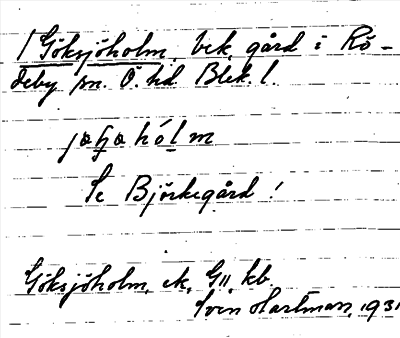 1 Göksjöholm, bek. gård i Rö-
deby sn. Ö. hd. Blek. l.
Se Björkegård!
Göksjöholm, ek. G11, kb.
Sven Hartman, 1931